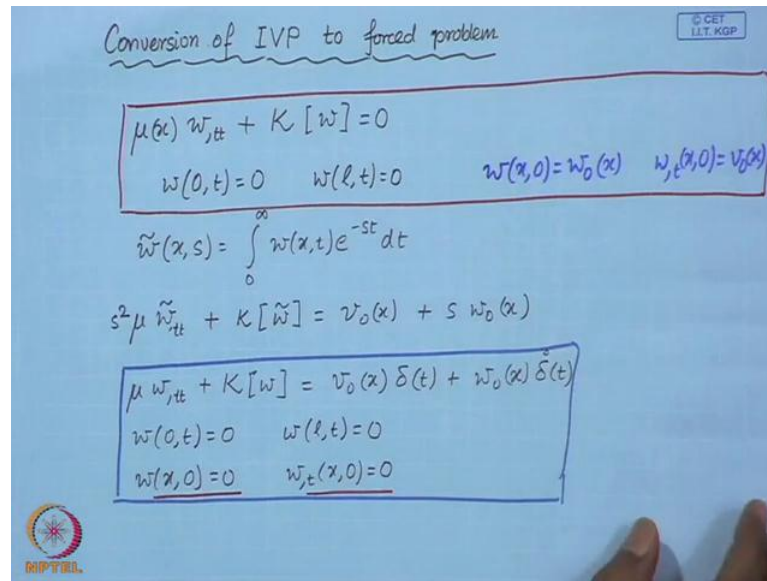 Conversion of IVP to forced problem
© CET
I.I.T. KGP
μ(x) w,tt + K [w] = 0
w(0,t) = 0 w(l,t) = 0 w(x,0) = w₀(x) w,t(x,0) = v₀(x)
w̃(x,s) = ∫₀^∞ w(x,t) e^{-st} dt
s²μ w̃,tt + K[w̃] = v₀(x) + s w₀(x)
μ w,tt + K[w] = v₀(x) δ(t) + w₀(x) δ̇(t)
w(0,t) = 0 w(l,t) = 0
w(x,0) = 0 w,t(x,0) = 0
NPTEL